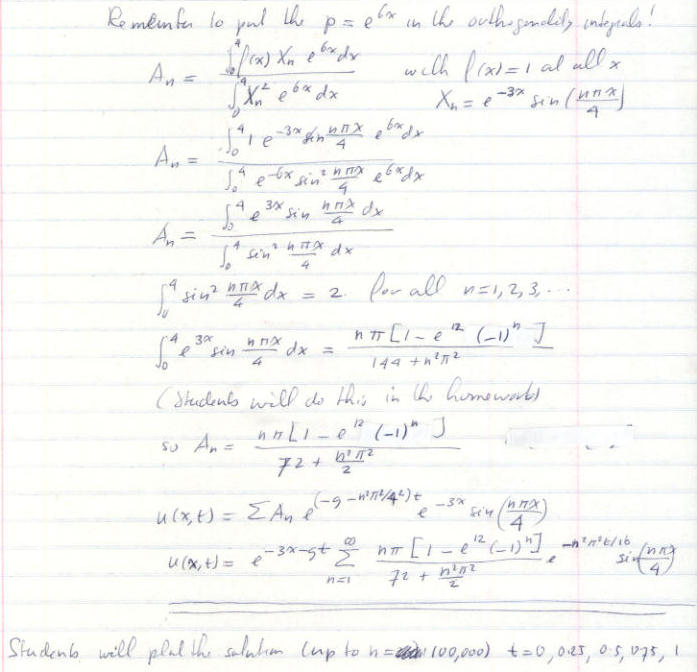 Remember to put the p = e^{6x} in the orthogonality integrals!
A_n = ∫_0^4 f(x) X_n e^{6x} dx / ∫_0^4 X_n^2 e^{6x} dx with f(x) = 1 at all x
X_n = e^{-3x} sin(nπx/4)
A_n = ∫_0^4 1 e^{-3x} sin nπx/4 e^{6x} dx / ∫_0^4 e^{-6x} sin^2 nπx/4 e^{6x} dx
A_n = ∫_0^4 e^{3x} sin nπx/4 dx / ∫_0^4 sin^2 nπx/4 dx
∫_0^4 sin^2 nπx/4 dx = 2. for all n=1,2,3,...
∫_0^4 e^{3x} sin nπx/4 dx = nπ[1 - e^{12} (-1)^n] / 144 + n^2π^2
(Students will do this in the homework)
so A_n = nπ[1 - e^{12} (-1)^n] / 72 + n^2π^2/2
u(x,t) = Σ A_n e^{(-9 - n^2π^2/4^2)t} e^{-3x} sin(nπx/4)
u(x,t) = e^{-3x-9t} Σ_{n=1}^∞ nπ[1 - e^{12} (-1)^n] / 72 + n^2π^2/2 e^{-n^2π^2t/16} sin(nπx/4)
Students will plot the solution (up to n = 100,000) t=0, 0.25, 0.5, 0.75, 1